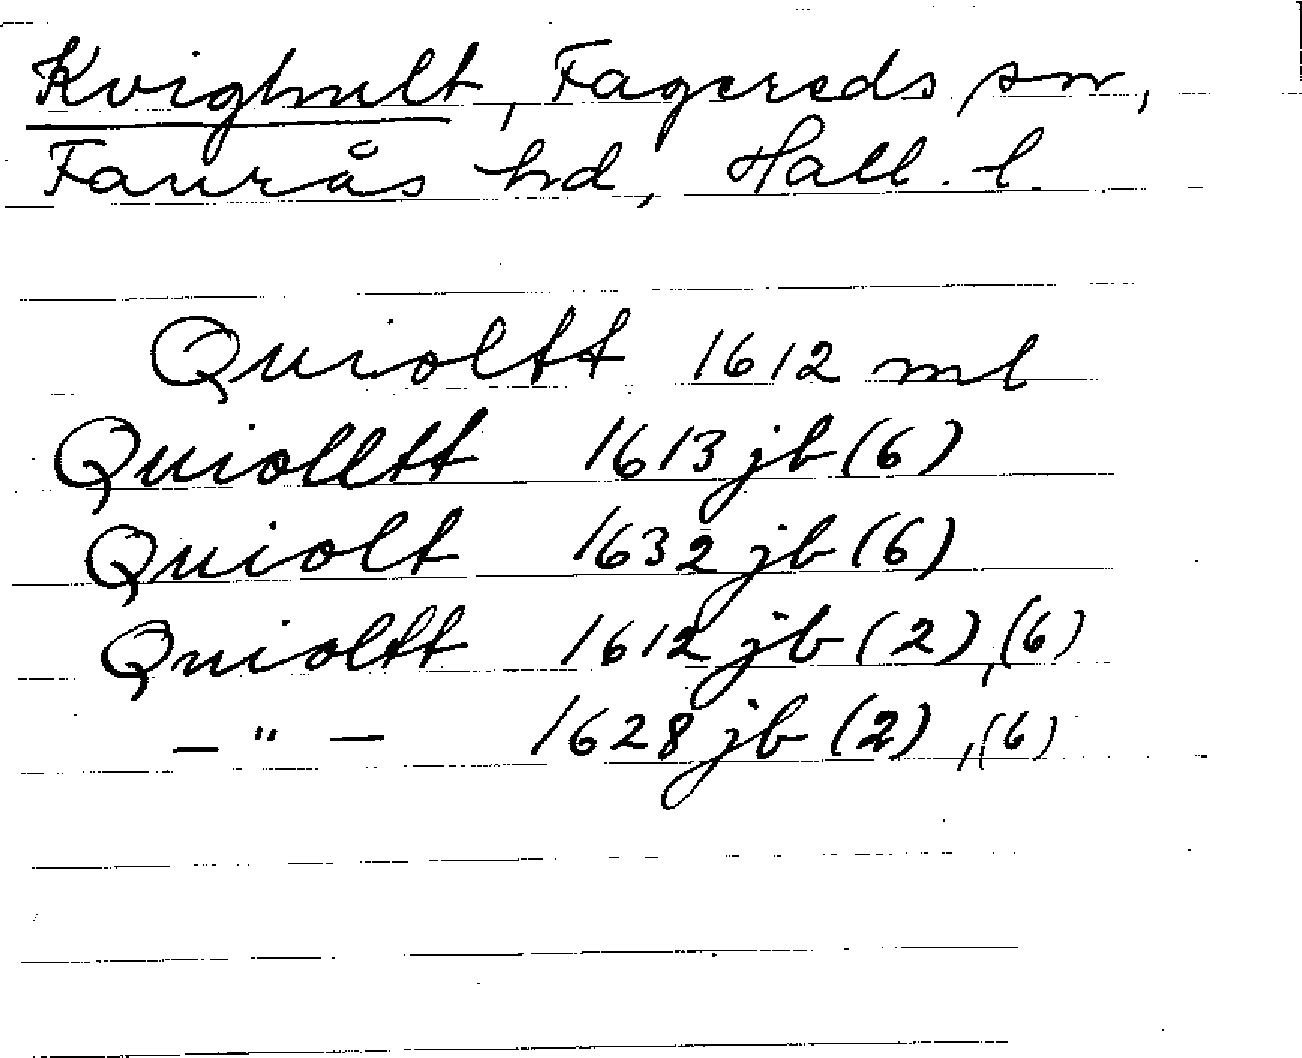 Kvighult, Fagereds sn,
Faurås hd, Hall. l.
Quioltt 1612 ml
Quiolltt 1613 jb (6)
Quiolt 1632 jb (6)
Quioltt 1612 jb (2), (6)
— " — 1628 jb (2), (6)